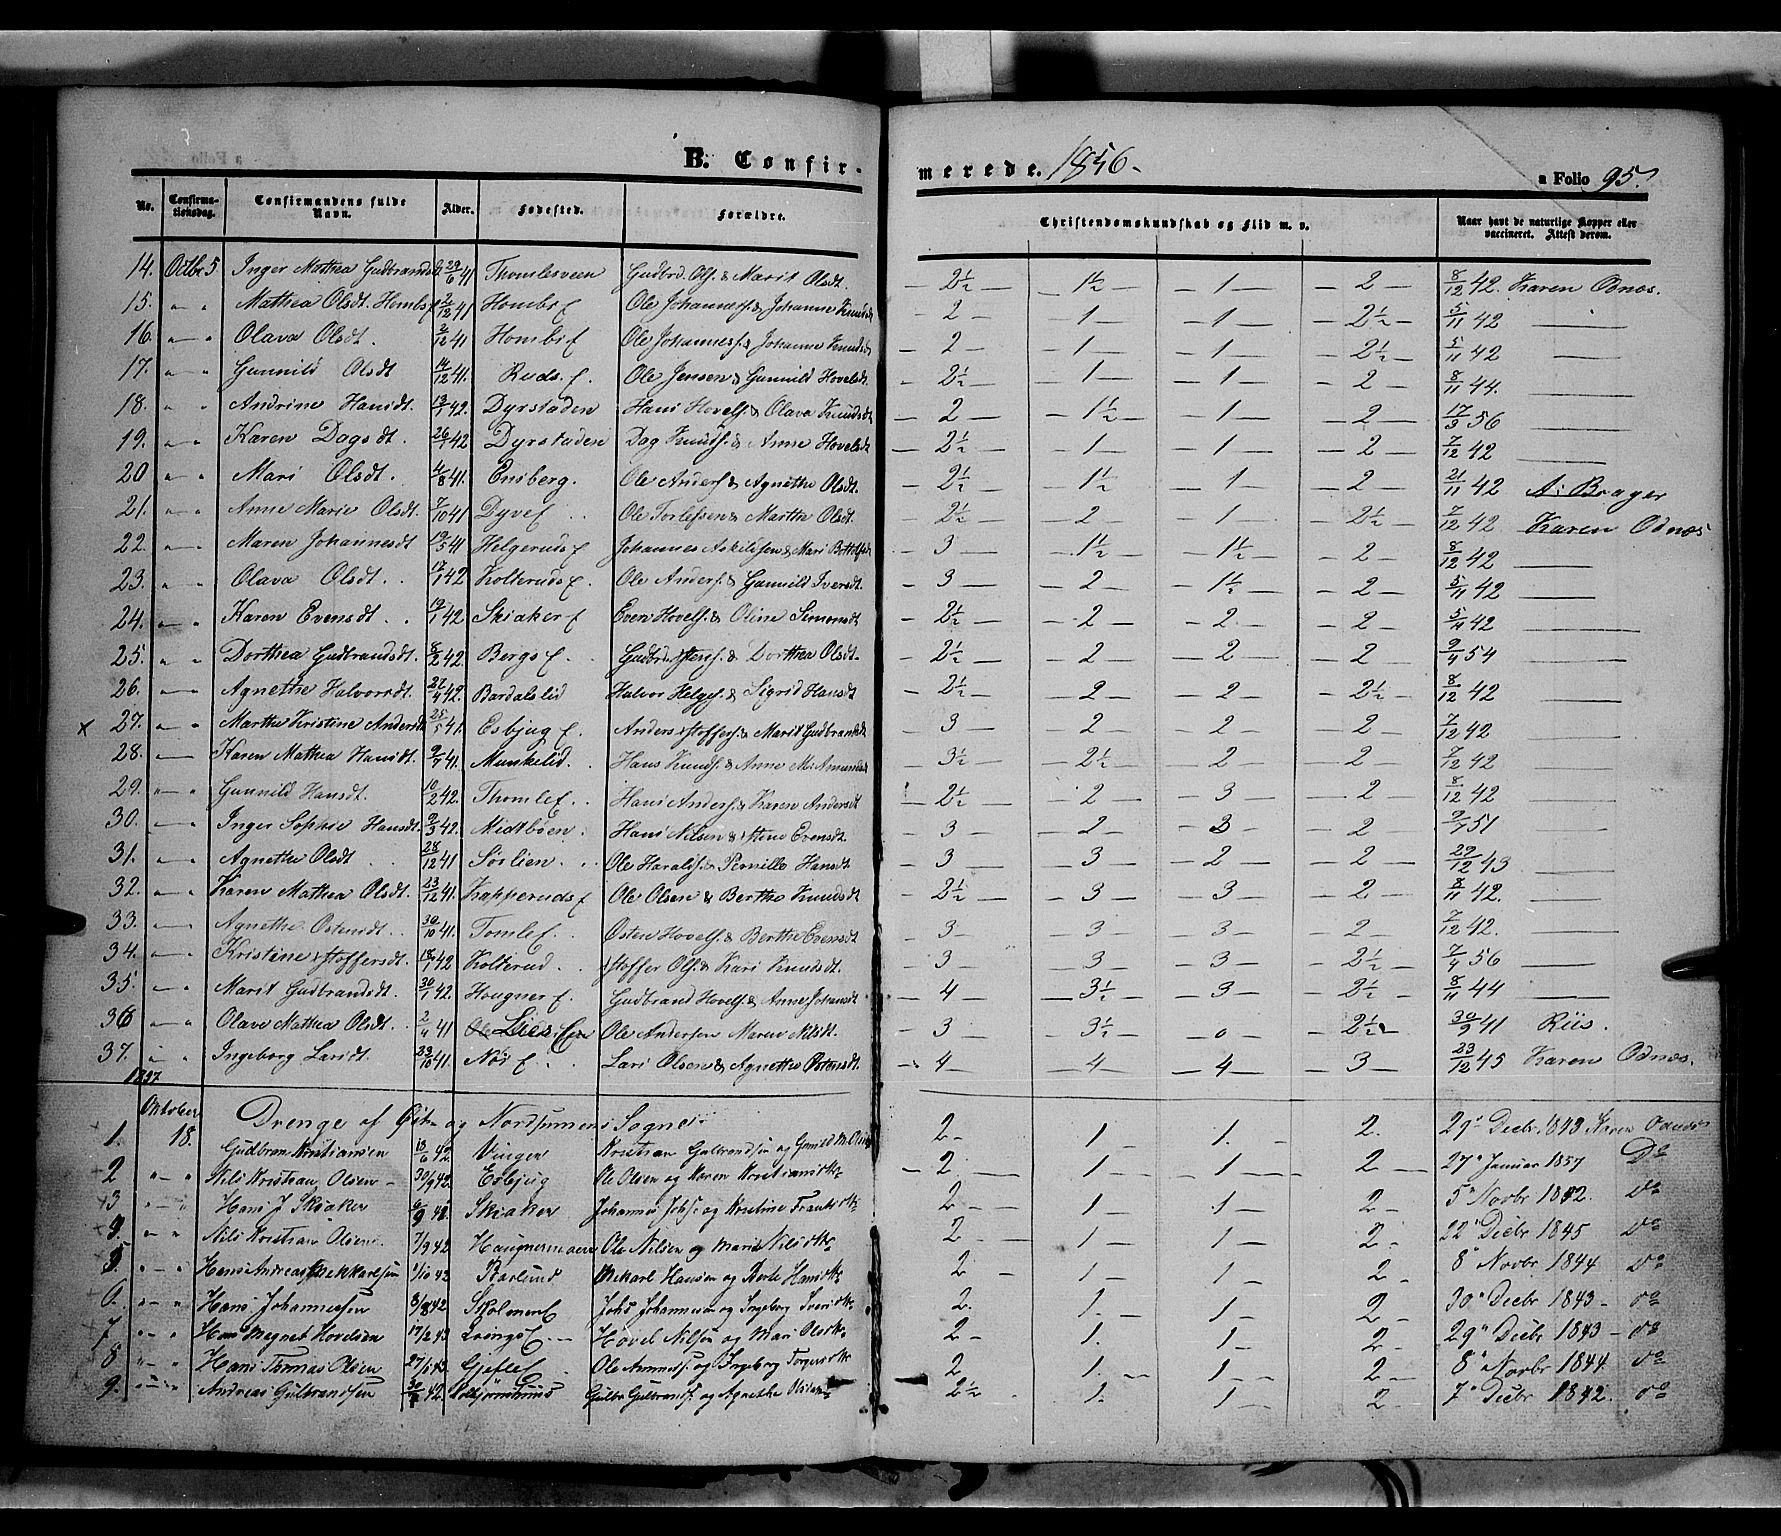 B. Confirmerede. 1856. a Folio 95.
No. Confirmationsdag. Confirmandens fulde Navn. Alder. Fødested. Forældre. Christendomskundskab og Flid m. v. Naar havt de naturlige Kopper eller vaccineret. Attest derom.
14. Octbr 5 Inger Mathea Gudbrandsd 29/6 41 Thomlesveen Gudbrd. Ols. & Marit Olsdt. 2½ 1½ 1 2 8/12 42. Karen Odnæs.
15. " " Mathea Olsdt. Hombsf 2/12 41 Hombsf Ole Johanness. & Johanne Knudsdt 2 1 1 2½ 5/11 42 —
16. — " Olava Olsdt. 2/12 41 Hombsf Ole Johanness. & Johanne Knudsdt 2 1 1 2½ 5/11 42 —
17. " " Gunnild Olsdt 14/12 41. Ruds. f. Ole Jensen & Gunnild Hovelsdt. 2½ 1 1 2 8/11 44. —
18. " " Andrine Hansdt. 13/1 42. Dyrstaden Hans Hovels. & Olava Knudsdt 2 1½ 1 2 17/3 56 —
19. — " Karen Dagsdt. 26/1 42 Dyrstaden Dag Knuds. & Anne Hovelsdt 2½ 1 1 2 7/12 42 —
20 " " Mari Olsdt. 4/8 41. Ensberg. Ole Anders. & Agnethe Olsdt. 2½ 1½ 1 2 21/11 42 A: Brager
21. — " Anne Marie Olsdt. 7/10 41 Dyvef Ole Torlefsen & Marthe Olsdt. 2½ 2 1 2½ 7/12 42. Karen Odnæs
22. — " Maren Johannesdt 19/5 41 Helgerudsf Johannes Askildsen & Mari Bottolfsdt 3 1½ 1½ 2 8/12 42 —
23. — " Olava Olsdt. 17/1 42 Kolterudsf. Ole Anders. & Gunnild Iversdt. 3 2 1½ 2 5/11 42 —
24. — " Karen Evensdt 19/1 42 Skiakerf Even Hovels. & Oline Simensdt 2½ 2 2 2 5/11 42 —
25. " " Dorthea Gudbrandsdt. 8/2 42. Bergsf. Gudbrd. Stens. & Dorthea Olsdt. 2½ 2 2 2 9/4 54 —
26. — " Agnethe Halvorsdt 27/4 42. Bardalslid Halvor Helges. & Sigrid Hansdt 2½ 2 2 2½ 8/12 42 —
x 27. " " Marthe Kristine Andersdt 25/5 41. Esbjugf. Anders Stoffers. & Marit Gudbrandsdt 3 2 2 2 7/12 42 —
28. — Karen Mathea Hansdt. 9/7 41. Munkelid. Hans Knuds. & Anne M: Amundsdt 3½ 2½ 2 2 7/12 42 —
29. " " Gunnild Hansdt. 10/2 42. Thomlef. Hans Anders. & Karen Andersdt 2½ 2 3 2 8/12 42 —
30. — " Inger Sophie Hansdt. 9/3 42. Midtbøen. Hans Nilsen & Stine Evensdt. 3 2 3 2 9/7 51 —
31. — " Agnethe Olsdt 28/12 41 Sørlien Ole Haralds. & Pernille Hansdt 3 3 2 2 29/12 43 —
32. " " Karen Mathea Olsdt. 23/12 41. Kapperudsf Ole Olsen & Berthe Knudsdt 2½ 3 3 2 8/11 42. —
33. — " Agnethe Ostensdt. 30/10 41. Tomlef. Osten Hovels. & Berthe Evensdt 3 3 3 2 7/12 42. —
34. — " Kristine Stoffersdt. 18/1 42 Kolterud Stoffer Ols. & Kari Knudsdt. 3 3 3 2½ 7/4 56 —
35. — " Marit Gudbrandsdt. 30/1 42. Hougnerf. Gudbrand Hovels. & Anne Johansdt 4 3½ 3 2½ 8/11 44 —
36 — " Olave Mathea Olsdt. 2/4 41 Lies Een Ole Andersen Maren Nilsdt. 3 3½ 0 2½ 30/9 41 Riis.
37. " " Ingeborg Larsdt. 23/10 41. Nørf. Lars Olsen & Agnethe Ostensdt. 4 4 4 3 23/12 45 Karen Odnæs.
1857
Oktober Drenge af Øst og Nordsinnens Sogne
1. 18. Gudbran Kristiansen 13/6 42 Vingen Kristian Gulbrandsen og 2 1 1. 2. 29" Decbr. 1843 Karen Odnæs
2 " " Nils Kristian Olsen 30/9 42 Esbjug Ole Olsen og Karen Kristiansdtr 2 1 1 2 27" Januar 1857 Do
3 " " Hans J Skiaker 6/9 42. Skiaker Johannes Johs. og Kristine Frantsdtr 2 1 1 2 5" Novbr 1842. do
4. " " Nils Kristian Olsen 7/9 42 Haugnermoen Ole Nilsen og Marie Nilsdtr 2 1 1 2 22" Decbr 1845 do
5 " " Hans Andreas Mekkarlsen 1/10 42 Karlund Mekarl Hansen og Berte Hansdtr 2 1 1 2 8" Novbr 1844 do
6. " " Hans Johannessen 8/8 42 Skolmenf Johs Johannesen og Ingeborg Iversdtr 2. 1. 1 2 30" Decbr 1843 do
7 " " Hans Magnet Hovelsen 17/2 43 Hovel Nilsen og Mari Olsdtr 2 1. 1 2 29" Decbr 1843 do
8 " " Hans Thomas Olsen 27/1 43 Gjeflef Ole Amundsen og Ingeborg Torgersdtr 2 1. 1 2 8" Novbr 1844. do
9. " " Andreas Gulbrandsen 42. Gulbr Gulbrands. og Agnethe Olsdtr 2½ 1. 1 2 7" Decbr 1842. do